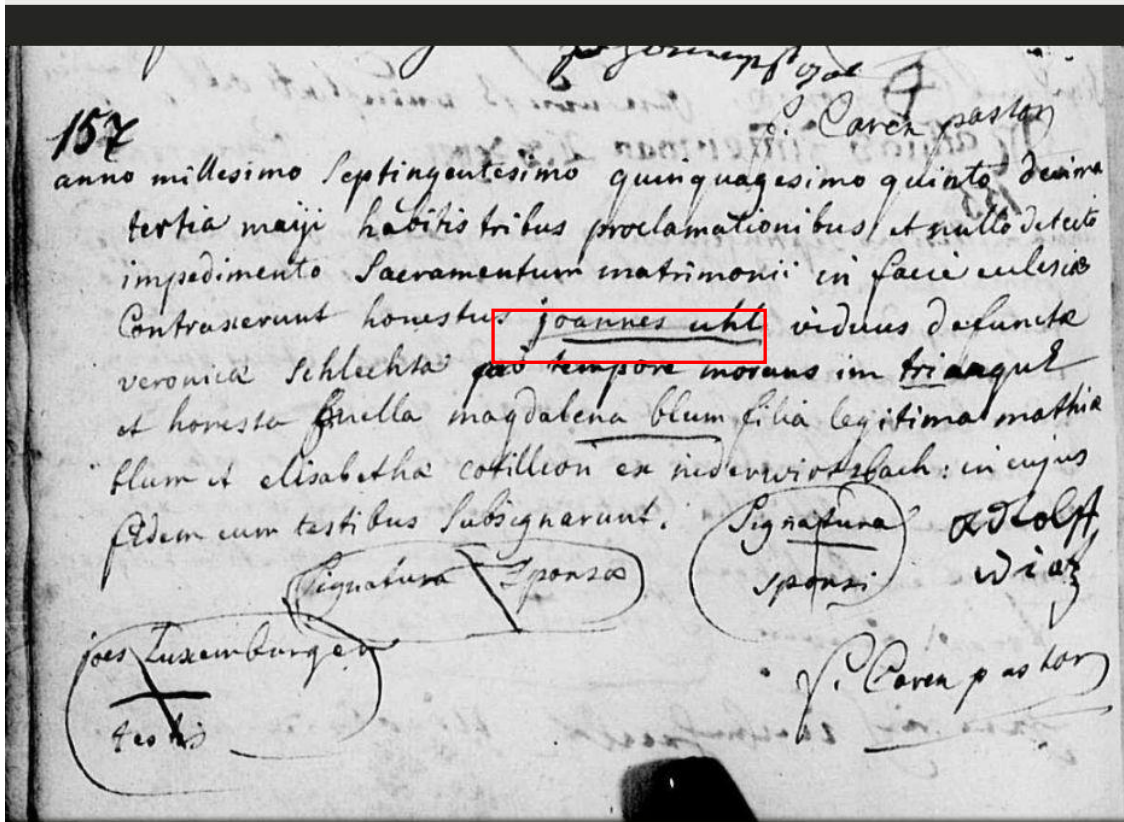 P. Caren pastor
157
anno millesimo septingentesimo quinquagesimo quinto decima
tertia maiji habitis tribus proclamationibus et nullo detecto
impedimento Sacramentum matrimonii in facie eclesiæ
Contraxerunt honestus joannes uhl viduus defunctæ
veronicæ Schlechta tempore morans im triangul
et honesta puella magdalena blum filia legitima mathiæ
blum et elisabethæ cotillion ex niderwirtzbach: in cujus
fidem cum testibus Subsignarunt.
Signatura Sponsæ
Signatura sponsi
adolff
joes Luxemburger
testis
P. Caren pastor